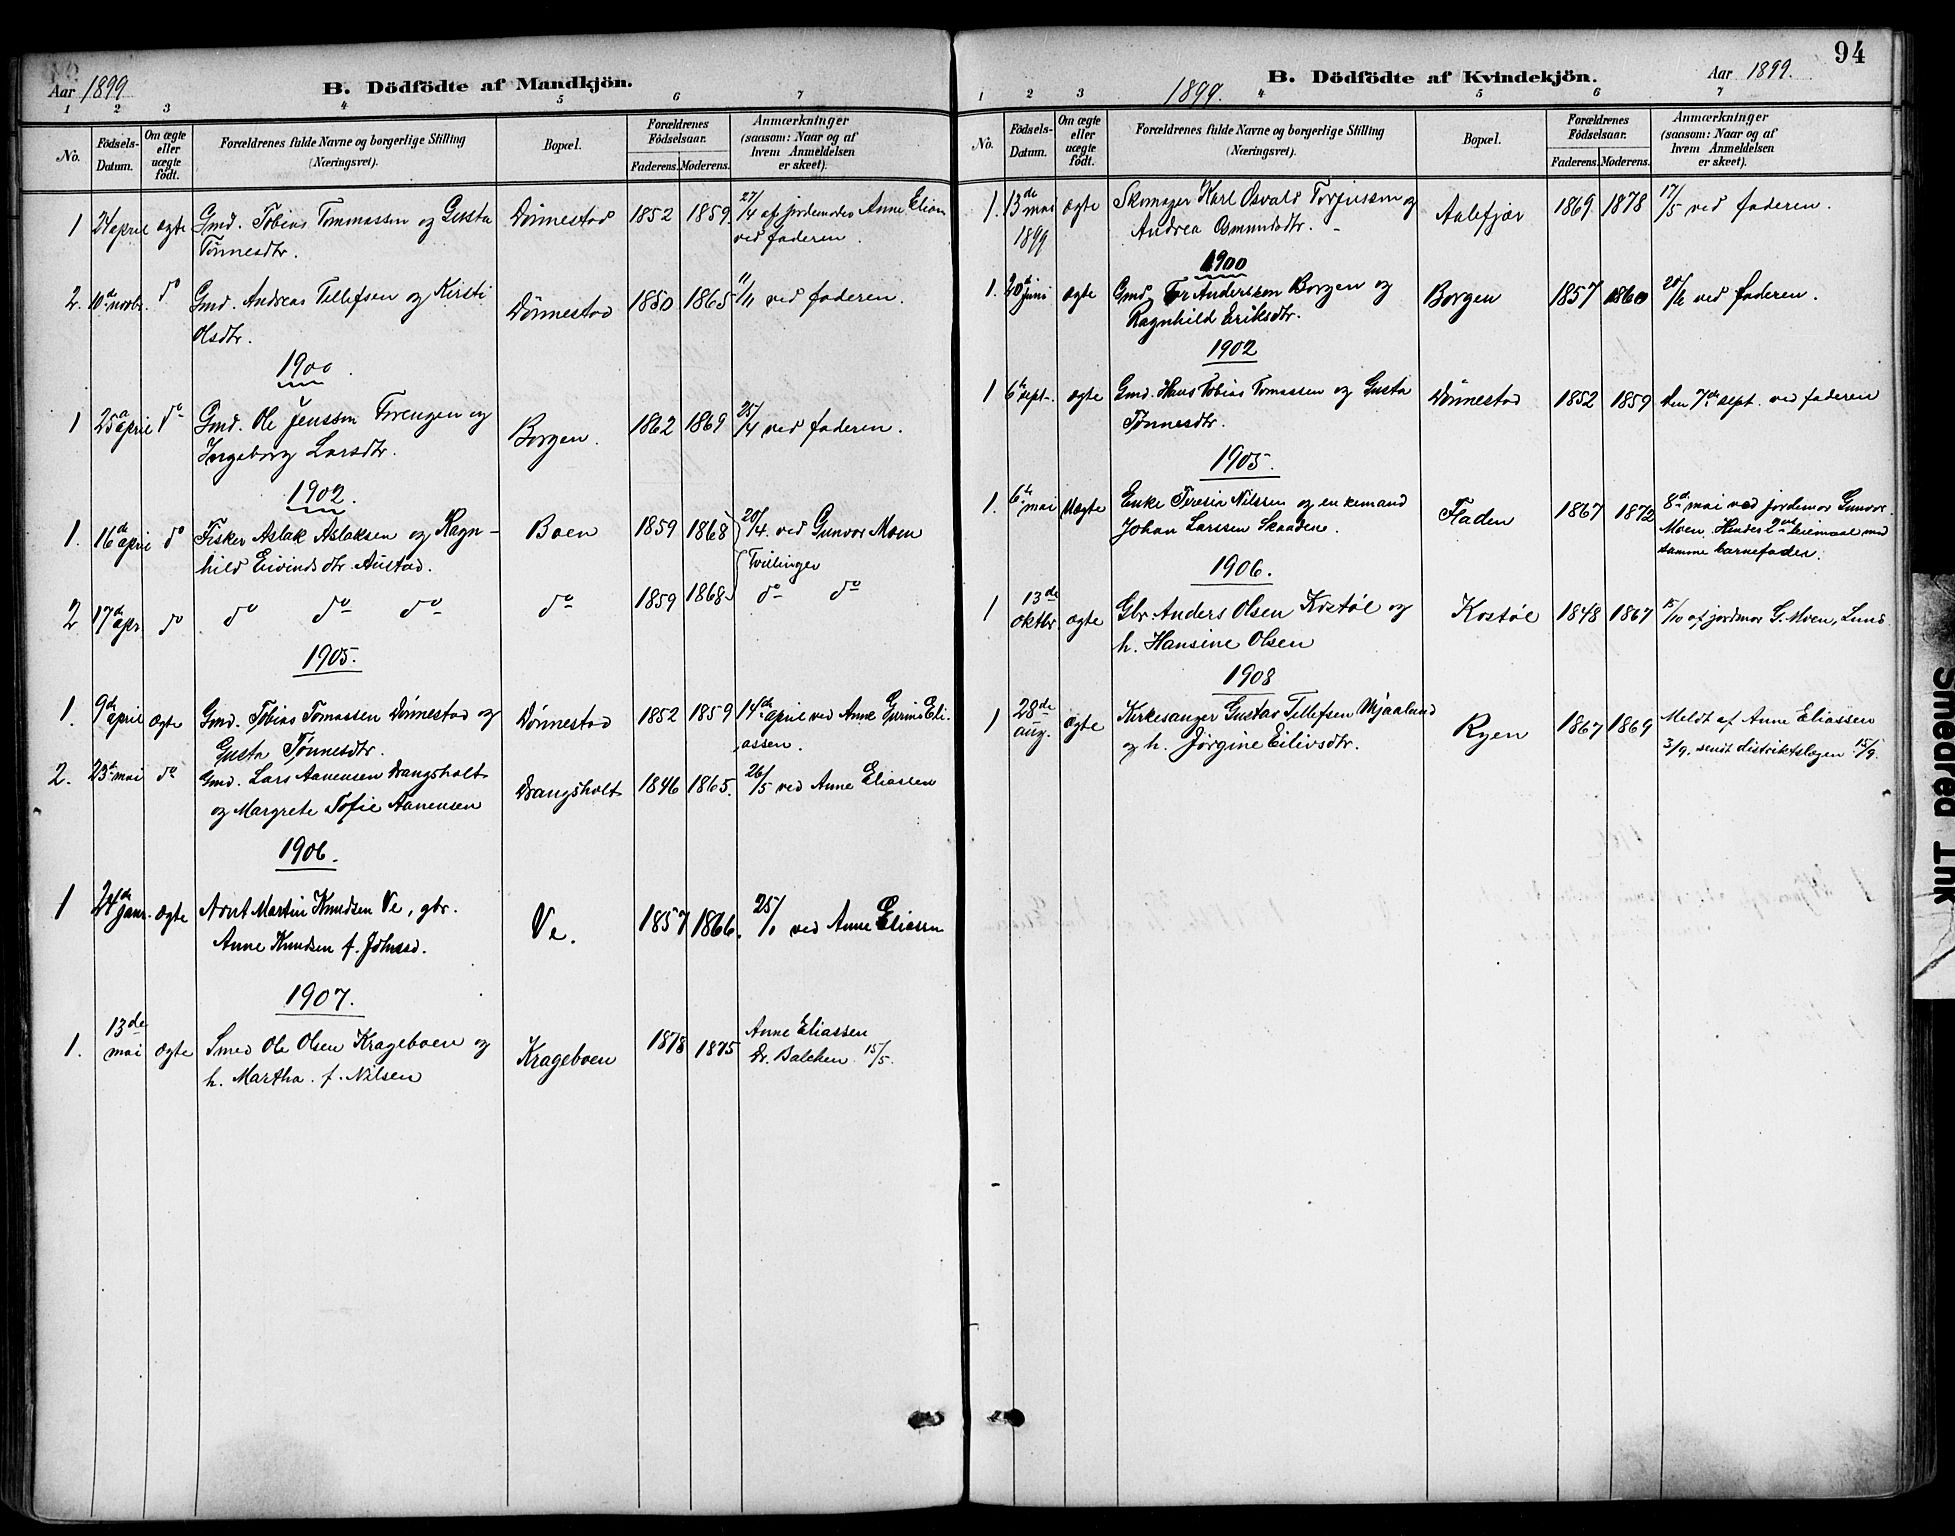 Aar 1899
B. Dödfödte af Mandkjön.
1 2 3 4 5 6 7
No.
Födsels-Datum.
Om ægte eller uægte födt.
Forældrenes fulde Navne og borgerlige Stilling (Næringsvei).
Bopæl.
Forældrenes Födselsaar.
Faderens. Moderens.
Anmærkninger (saasom: Naar og af hvem Anmeldelsen er skeet).
1 24 april ægte Gmd. Tobias Tommassen og Gusta Dönnestad 1852 1859 27/4 af jordemoder Anne Elias
Tönnesdtr. ved faderen.
2. 10de novbr. do Gmd. Andreas Tellefsen og Kirsti Dönnestad 1850 1865 11/11 ved faderen.
Olsdtr.
1900
1 25d april do Gmd. Ole Jenssen Torengen og Borgen. 1862 1869 25/4 ved faderen.
Ingeborg Larsdtr.
1902.
1. 16de april do Fisker Aslak Aslaksen og Ragn- Boen 1859 1868 20/4 ved Gunvor Moen
hild Eivindsdtr. Austad. Tvillinger
2 17de apr. do do do do do 1859 1868 do do
1905.
1. 9de april Ægte Gmd. Tobias Tomassen Dönnestad og Dönnestad 1852 1859 14de april ved Anne Gurine Eli-
Gusta Tönnesdtr. assen.
2. 23d mai do Gmd. Lars Aanensen Drangsholt Drangsholt 1846 1865. 26/5 ved Anne Eliassen
og Margrete Tofie Aanensen
1906.
1 24de janr. Ægte Arnt Martin Knudsen Ve, gbr. Ve. 1857 1866. 25/1 ved Anne Eliassn
Anne Knudsen f.
1907.
1. 13de mai Ægte Smed Ole Olsen Krageboen og Krageboen 1878 1875 Anne Eliassen
h. Martha f. Nilsen Dr. Balchen 15/5.
94
1899.
B. Dödfödte af Kvindekjön.
Aar 1899.
1 2 3 4 5 6 7
No.
Födsels-Datum.
Om ægte eller uægte födt.
Forældrenes fulde Navne og borgerlige Stilling (Næringsvei).
Bopæl.
Forældrenes Födselsaar.
Faderens. Moderens.
Anmærkninger (saasom: Naar og af hvem Anmeldelsen er skeet).
1. 13de mai 1899 ægte Skomager Karl Osvald Torjussen og Aalefjær 1869 1878 17/5 ved faderen.
Andrea Osmundsdtr.
1900
1. 20d juni ægte Gmd. Tor Anderssen Borgen og Borgen 1857 1860 20/6 ved faderen.
Ragnhild Eriksdtr.
1902
1 6te sept. ægte Gmd. Hans Tobias Tomassen og Gusta Dönnestad 1852 1859 den 7de sept. ved faderen
Tönnesdtr.
1905.
1. 6te mai Uægte Enke Teresia Nilssen og enkemand Fladen 1867 1872 8de mai ved jordemor Gunvor
Johan Larssen Skaaden. Moen. Hendes 2det leiermaal med
samme barnefader.
1906.
1 13de oktbr. ægte Gbr. Anders Olsen Kostöl og Kostöl 1848 1867 15/10 af jordmor G. Moen, Lund
h. Hansine Olsen
1908
1 28de aug. Ægte Kirkesanger Gustav Tellefsen Mjaaland Ryen 1867 1869 Meldt af Anne Eliassen
og h. Jörgine Eilivsdtr. 3/9, sendt distriktslægen 15/9.
Smeared Ink